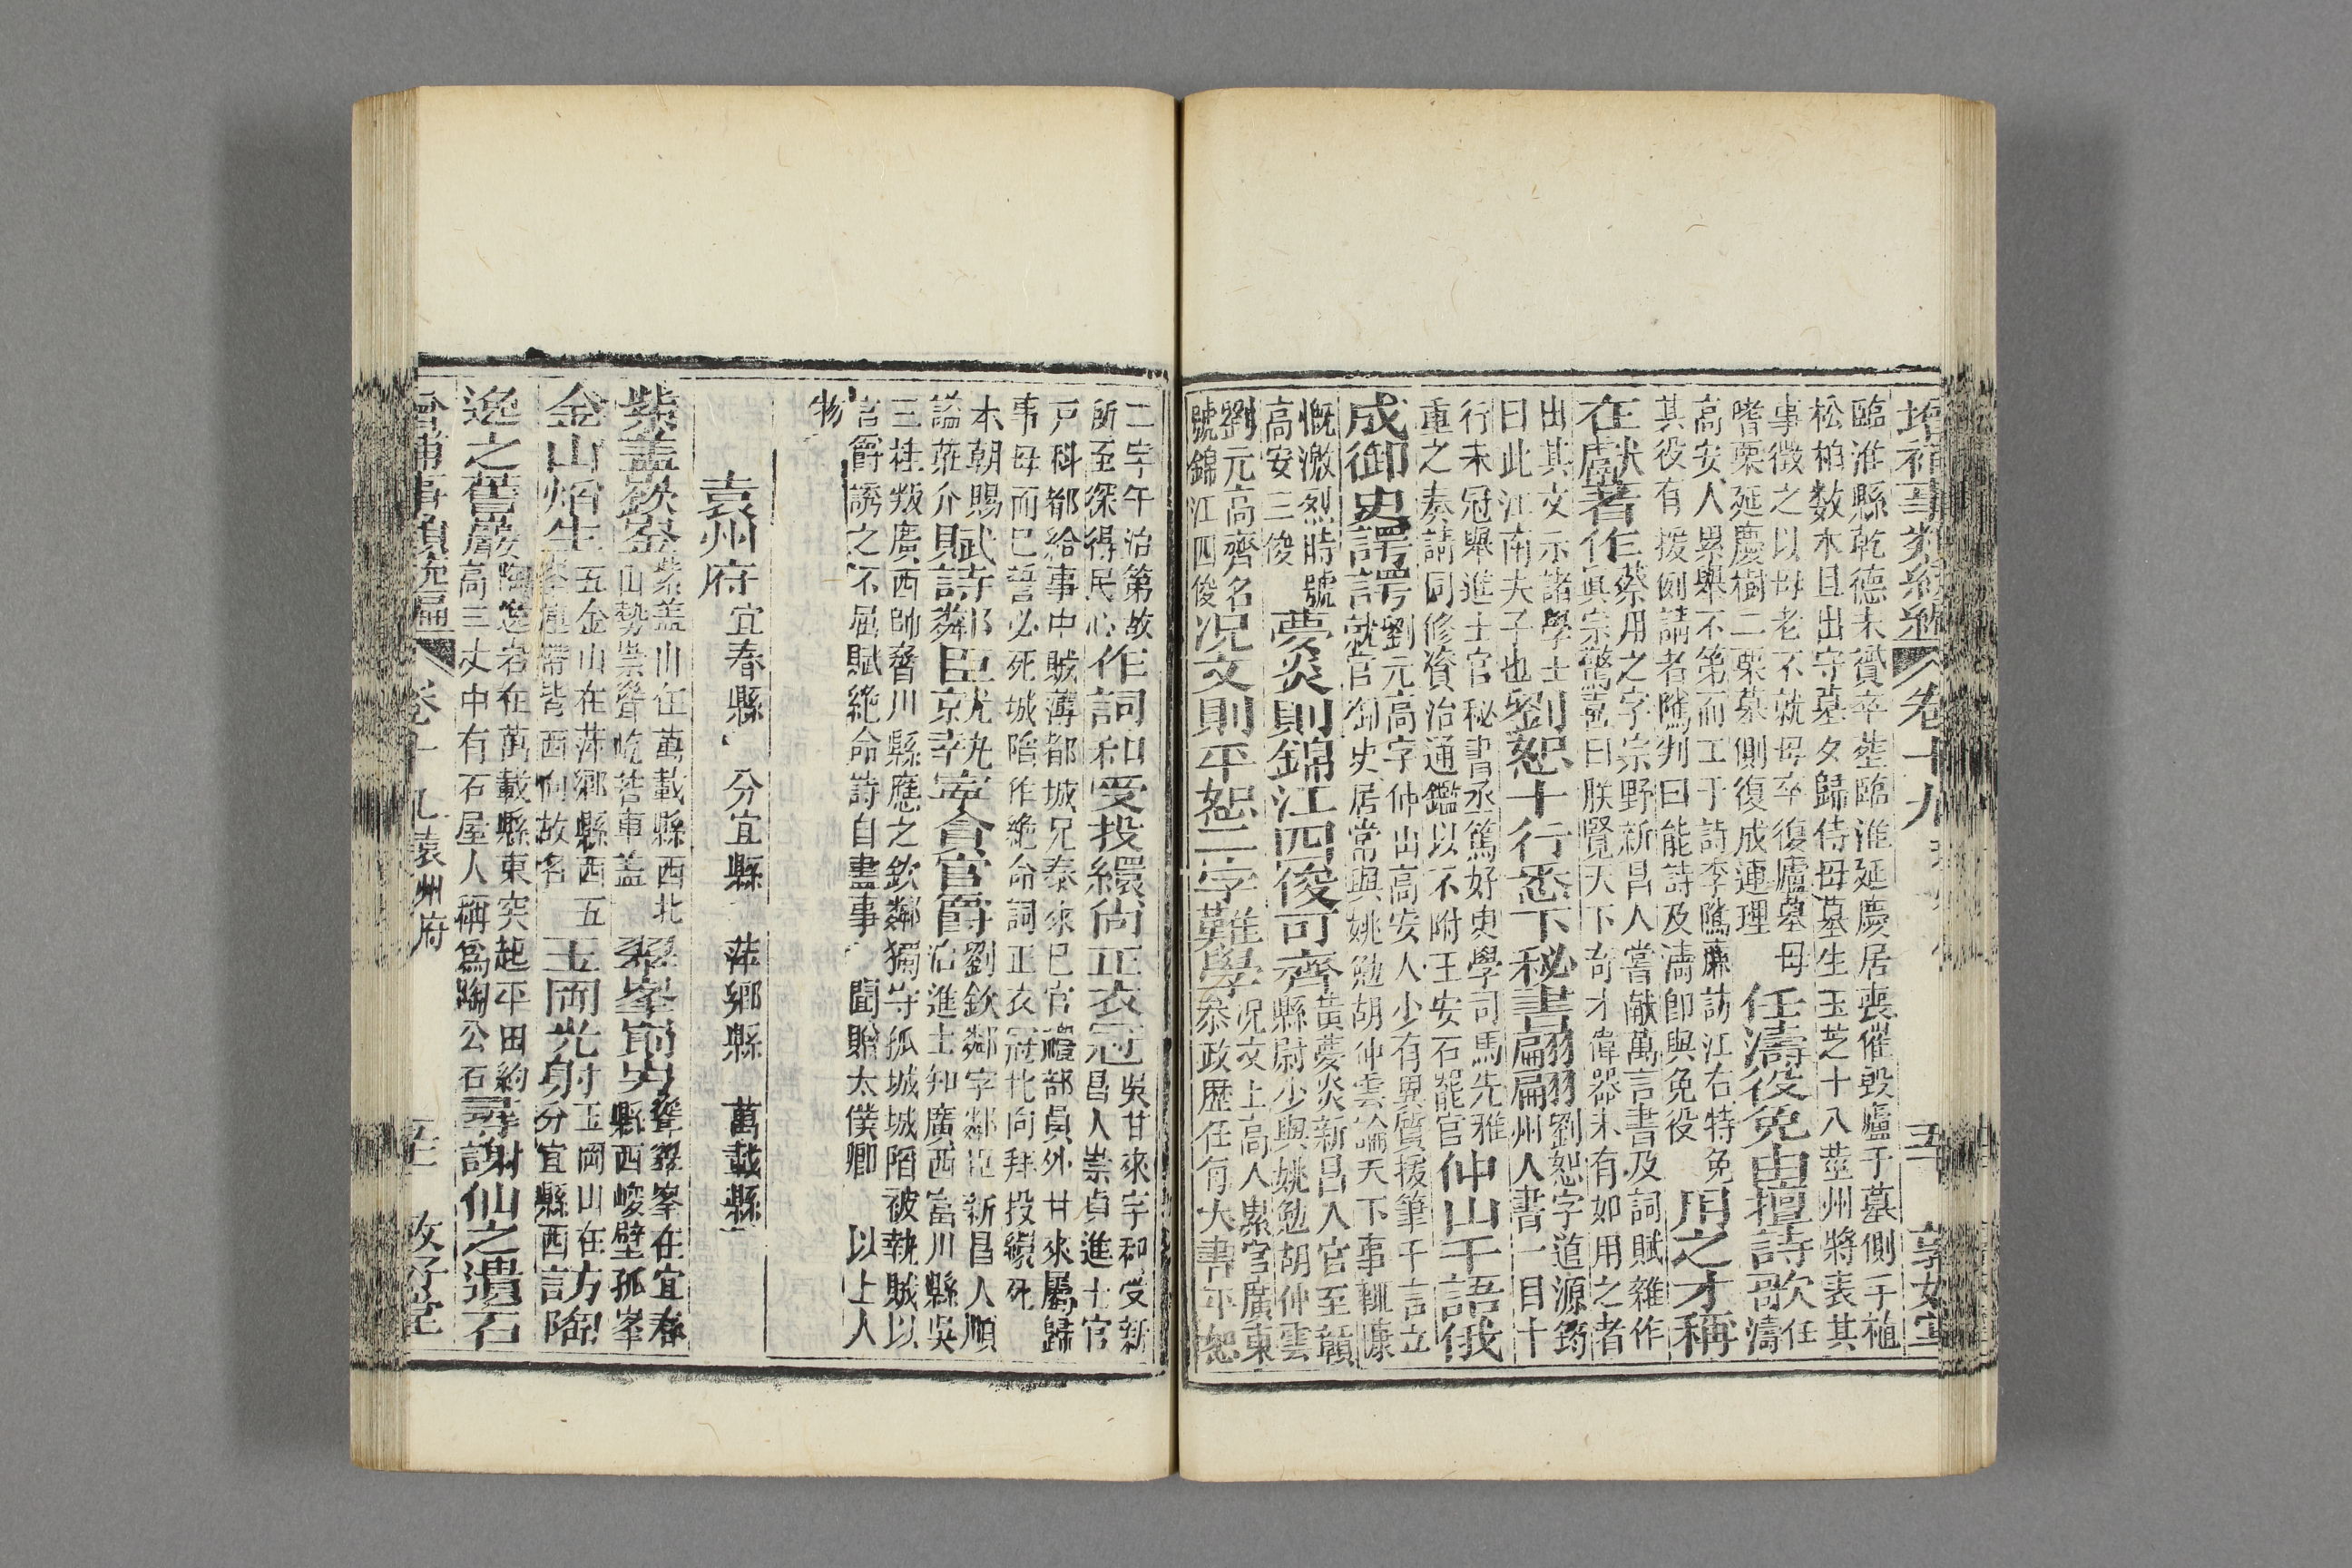 增補事類統編 卷十九 五 敦好堂
臨淮縣乾德未贇卒塟臨淮延慶居喪催毀廬于墓側手植
松柏数木旦出守墓夕歸侍母墓生玉芝十八莖州將表其
事徵之以母老不就母卒復廬墓母
嗜栗延慶樹二栗墓側復成連理
任濤役免由擅詩歌
任濤
高安人累舉不第而工于詩李隲廉訪江右特免
其役有援例請者隲判曰能詩及濤卽與免役
用之才稱
在獻著作
蔡用之字宗野新昌人嘗献萬言書及詞賦雜作
眞宗驚喜曰朕覽天下奇才偉器未有如用之者
出其文示諸學士
曰此江南夫子也
劉恕十行悉下秘書翩翩
劉恕字道源筠
州人書一目十
行未冠舉進士官秘書丞篤好史學司馬先雅
重之奏請同修資治通鑑以不附王安石罷官
仲山千語俄
成御史諤諤
劉元高字仲山高安人少有異質援筆千言立
就官御史居常與姚勉胡仲雲論天下事輒慷
慨激烈時號
高安三俊
夢炎則錦江四俊可齊
黃夢炎新昌人官至贛
縣尉少與姚勉胡仲雲
劉元高齊名
號錦江四俊
况文則平恕二字難學
况文上高人累官廣東
叅政歷任有大書平恕
二字午治第故
所至深得民心
作詞和受投繯尚正衣冠
吳甘來字和受新
昌人崇貞進士官
戸科都給事中賊薄都城兄泰來已官禮部員外甘來屬歸
事母而已誓必死城陷作絶命詞正衣冠北向拜投繯死
本朝賜
諡莊介
賦詩鄰臣京幸寧貪官爵
劉欽鄰字鄰臣新昌人順
治進士知廣西富川縣吳
三桂叛廣西帥脅川縣應之欽鄰獨守孤城城陷被執賊以
官爵誘之不屈賦絶命詩自盡事 聞贈太僕卿 以上人
物
袁州府 宜春縣 分宜縣 萍鄉縣 萬載縣
紫盖嶔崟
紫盖山在萬載縣西北
山勢崇聳屹若車盖
翠峯崱屴
聳翠峯在宜春
縣西峻壁孤峯
金山焰生
五金山在萍鄉縣西五
峯連帶皆西向故名
玉岡光射
玉岡山在
分宜縣西
訪陶
逸之舊巖
陶逸岩在萬載縣東突起平田約
高三丈中有石屋人稱爲陶公石
尋謝仙之遺石
增補事類統編 卷十九袁州府 五 敦好堂